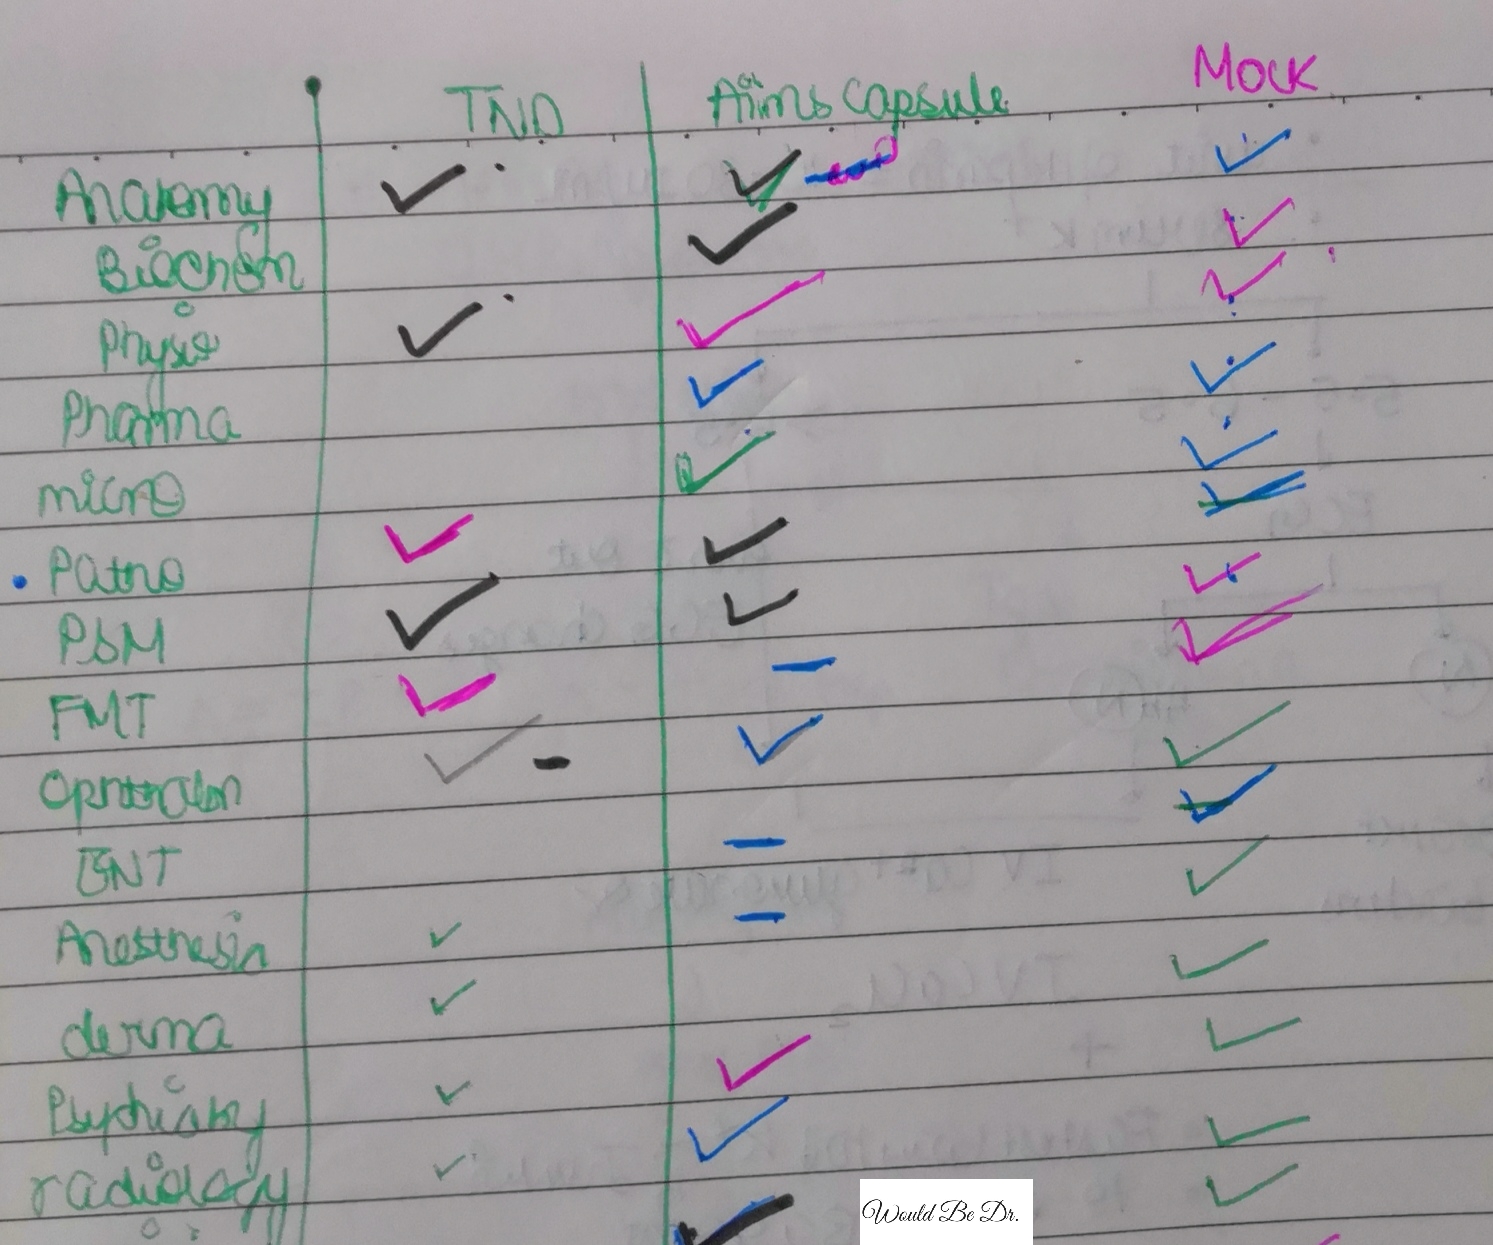 TND Aiims capsule Mock
Anatomy ✓ ✓ ✓
Biochem ✓ ✓
Physio ✓ ✓ ✓
Pharma ✓ ✓
micro ✓ ✓
Patho ✓ ✓ ✓
PSM ✓ ✓ ✓
FMT ✓ – ✓
Ophthalm ✓ – ✓ ✓
ENT – ✓
Anesthesia ✓ – ✓
derma ✓ ✓
Psychiatry ✓ ✓ ✓
radiology ✓ ✓ ✓
Would Be Dr.